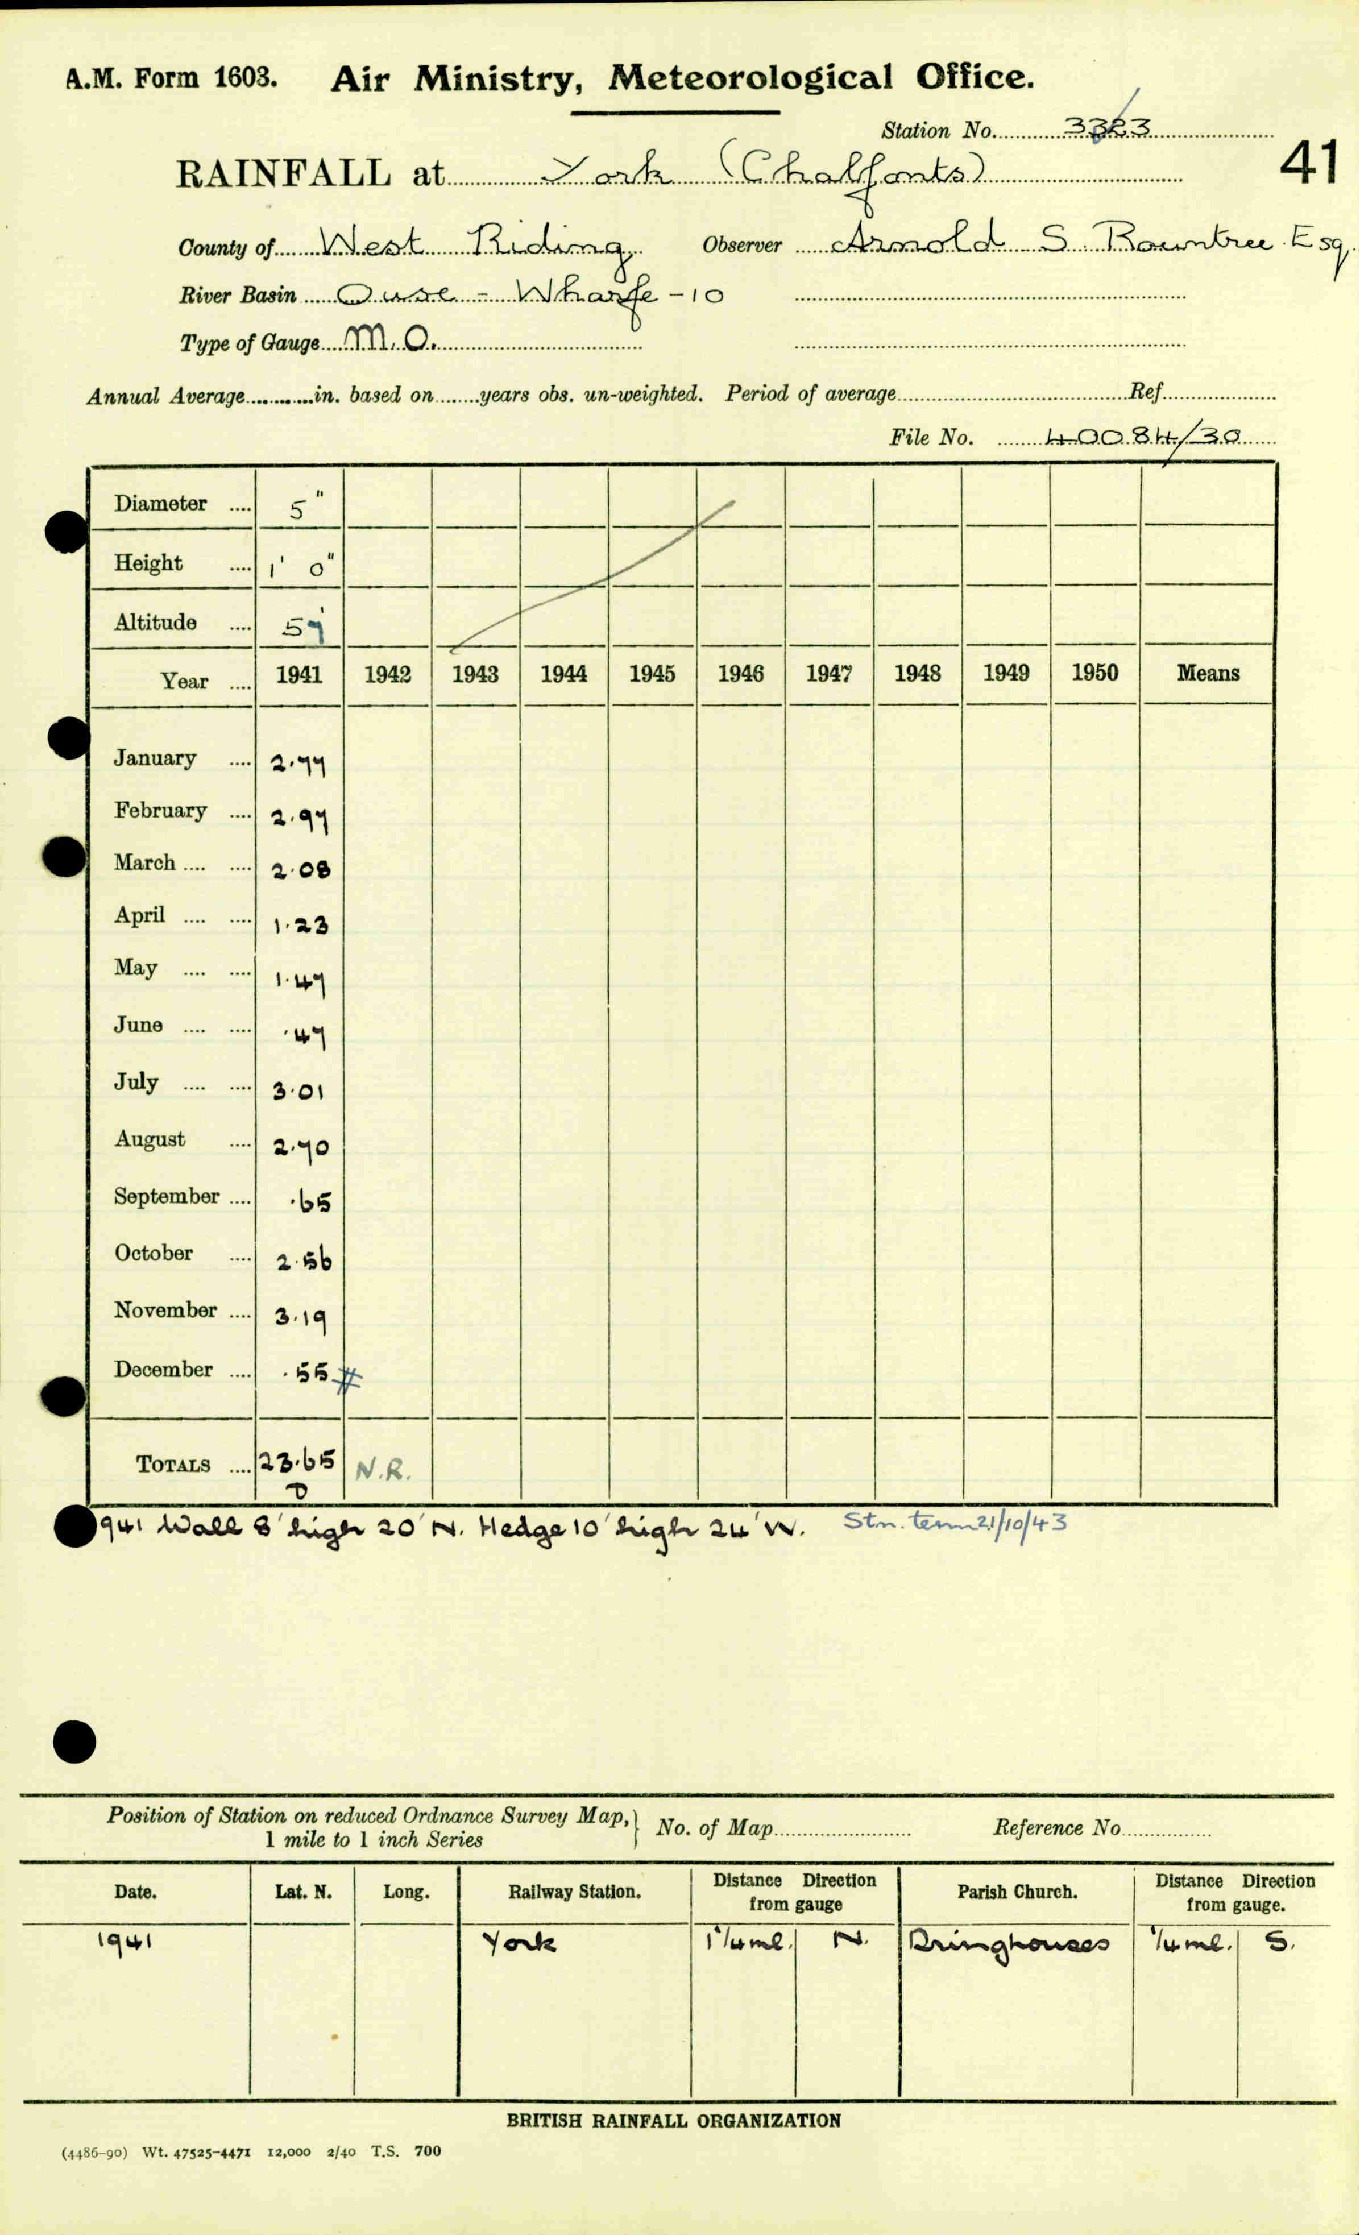 A.M. Form 1603. Air Ministry, Meteorological Office.
Station No.
41
RAINFALL at York (Chalfonts)
County of West Riding Observer Arnold S Rowntree Esq.
River Basin Ouse - Wharfe - 10
Type of Gauge M.O.
Annual Average............in. based on........years obs. un-weighted. Period of average Ref.
File No. 40084/30
Diameter .... 5"
Height .... 1' 0"
Altitude .... 57'
Year .... 1941 1942 1943 1944 1945 1946 1947 1948 1949 1950 Means
January .... 2.77
February .... 2.97
March .... .... 2.08
April .... .... 1.23
May .... .... 1.47
June .... .... .47
July .... .... 3.01
August .... 2.70
September .... .65
October .... 2.56
November .... 3.19
December .... .55 #
TOTALS .... 23.65 N.R.
D
1941 Wall 8' high 20' N. Hedge 10' high 24' W. Stn. term 21/10/43
Position of Station on reduced Ordnance Survey Map, } No. of Map Reference No.
1 mile to 1 inch Series
Date. Lat. N. Long. Railway Station. Distance Direction from gauge Parish Church. Distance Direction from gauge.
1941 York 1 1/4 ml. N. Dringhouses 1/4 ml. S.
BRITISH RAINFALL ORGANIZATION
(4486-90) Wt. 47525-4471 12,000 2/40 T.S. 700